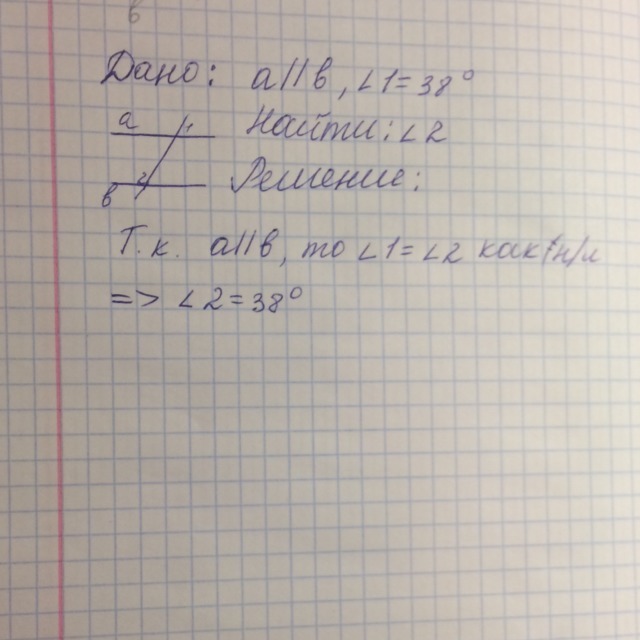 в
Дано: a||в, ∠1=38°
a 1 Найти: ∠2
в 2 Решение:
Т.к. a||в, то ∠1=∠2 как н/л
=> ∠2=38°